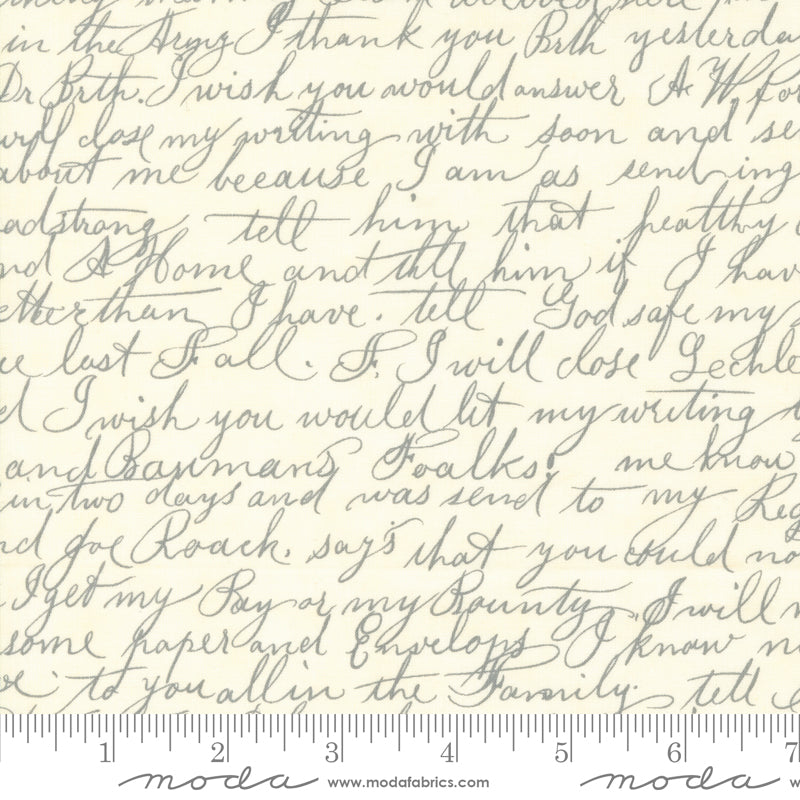 in the Army I thank you Brth yesterda
Dr Brth. I wish you would answer A W. for
will close my writing with soon and se
about me beecause I am as send ing
adstrong tell him that healthy
nd A Home and till him if I hav
etter than I have. tell God safe my
ue last Fall. F. I will close Lechle
d I wish you would let my writing
and Baumans Foalks. me know
in two days and was send to my Reg
nd Joe Roack. say's that you could no
I get my Pay or my Bounty, I will
some paper and Envelops I know n
to you all in the Family. tell
1 2 3 4 5 6 7
moda www.modafabrics.com moda w